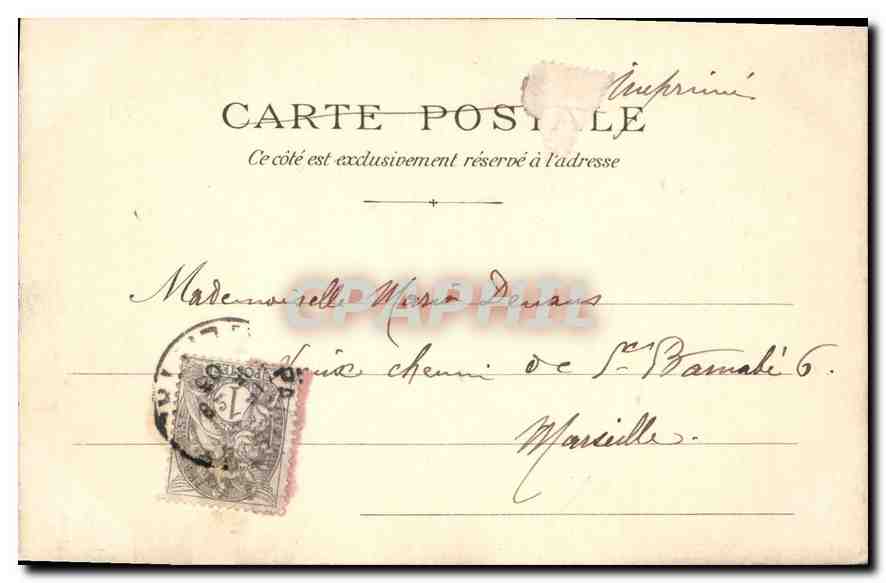 Imprimé
CARTE POSTALE
Ce côté est exclusivement réservé à l'adresse
Mademoiselle Maria Denans
CPAPHIL
chemin de St Barnabé 6.
POSTES
1c
Marseille.